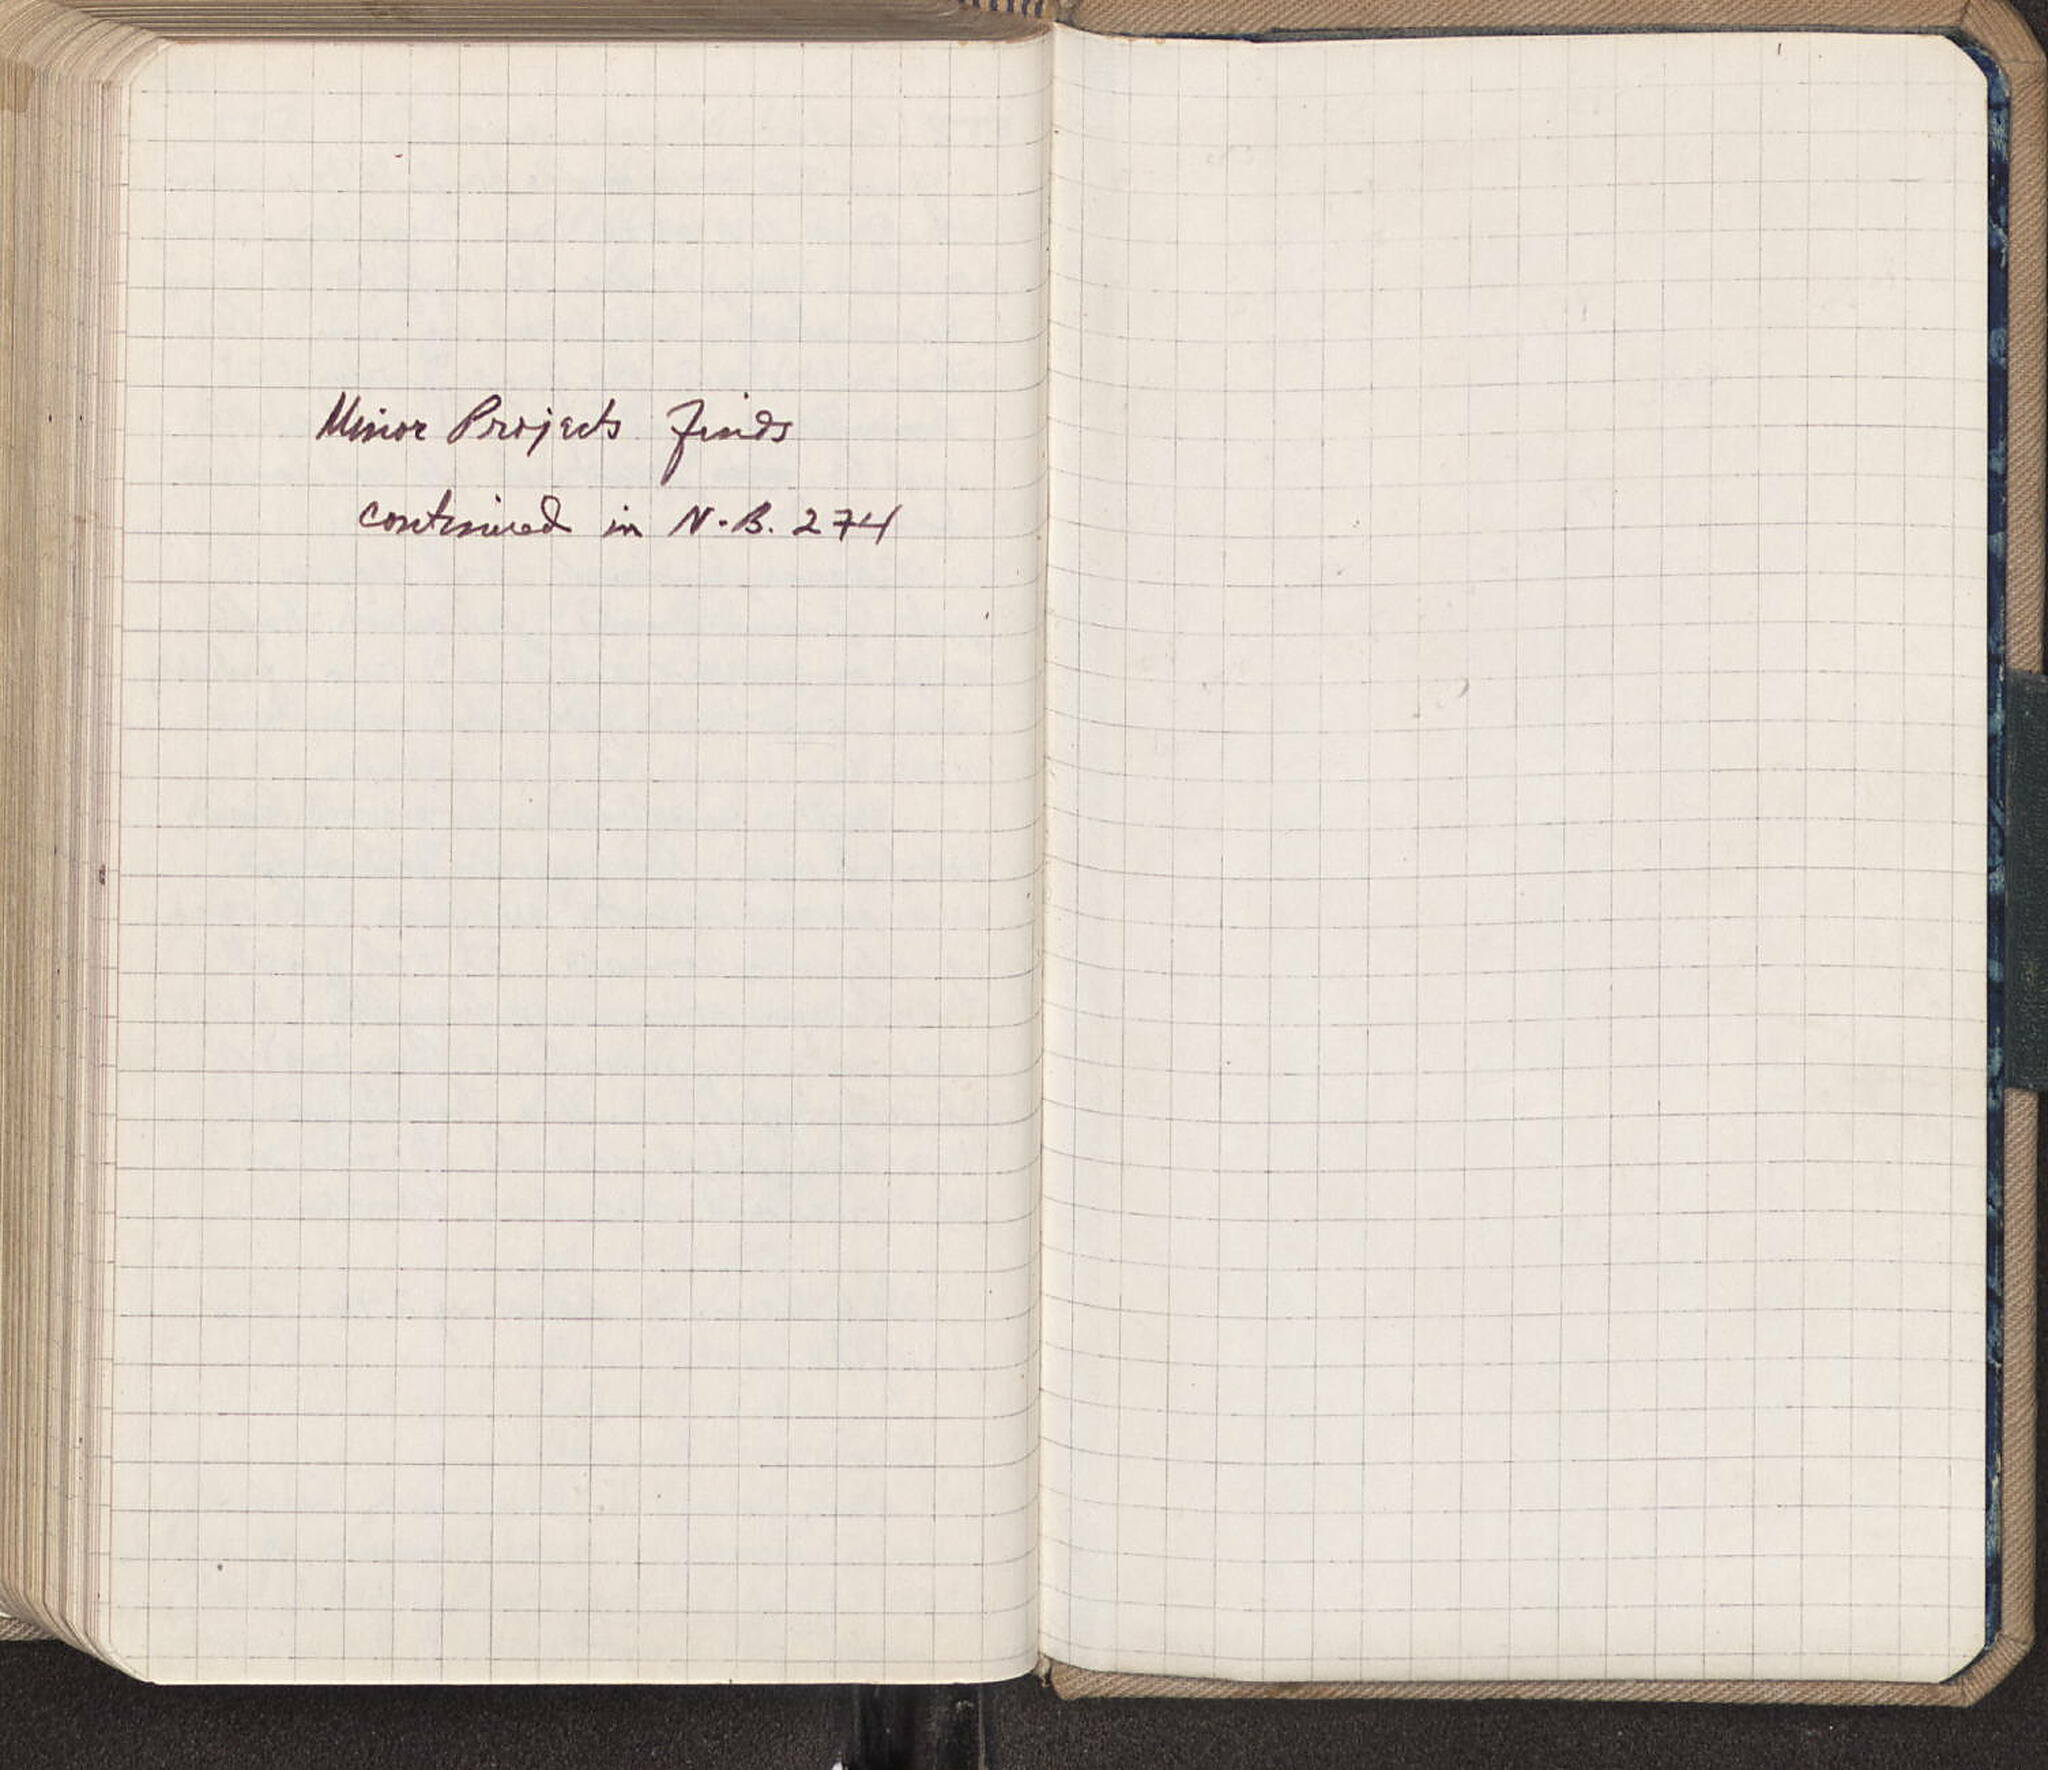 Minor Projects finds
continued in N.B. 274